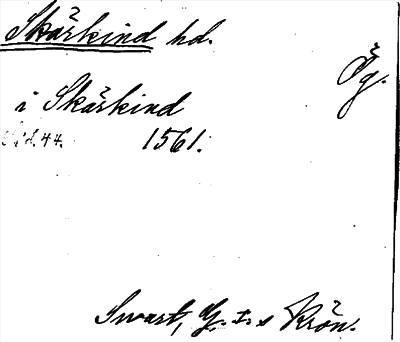 Skärkind hd.
Ög.
i Skärkind
Sid. 44. 1561.
Swart, G. I:s Krön.